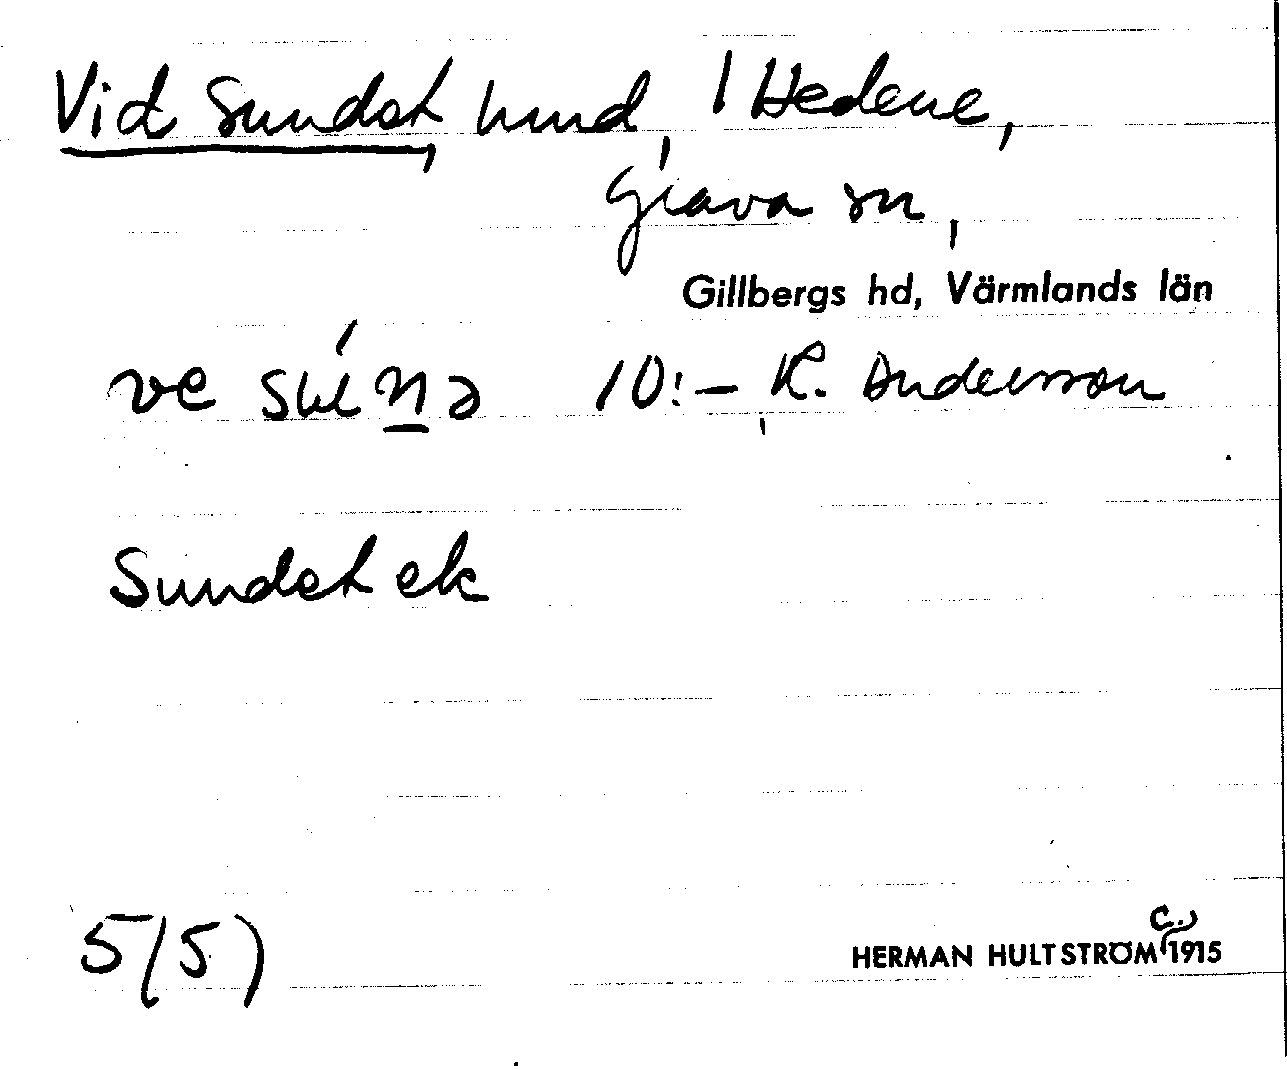 Vid Sundet, hmd, 1 Hedene,
Grava sn,
Gillbergs hd, Värmlands län
ve 10:- K. Andersson
Sundet ek
5(5)
HERMAN HULTSTRÖM C. 1915